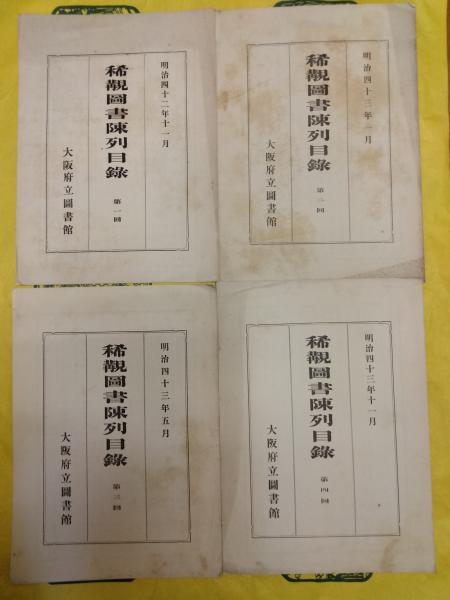 明治四十二年十一月
稀覯圖書陳列目錄 第一回
大阪府立圖書館
明治四十三年一月
稀覯圖書陳列目錄 第二回
大阪府立圖書館
明治四十三年五月
稀覯圖書陳列目錄 第三回
大阪府立圖書館
明治四十三年十一月
稀覯圖書陳列目錄 第四回
大阪府立圖書館